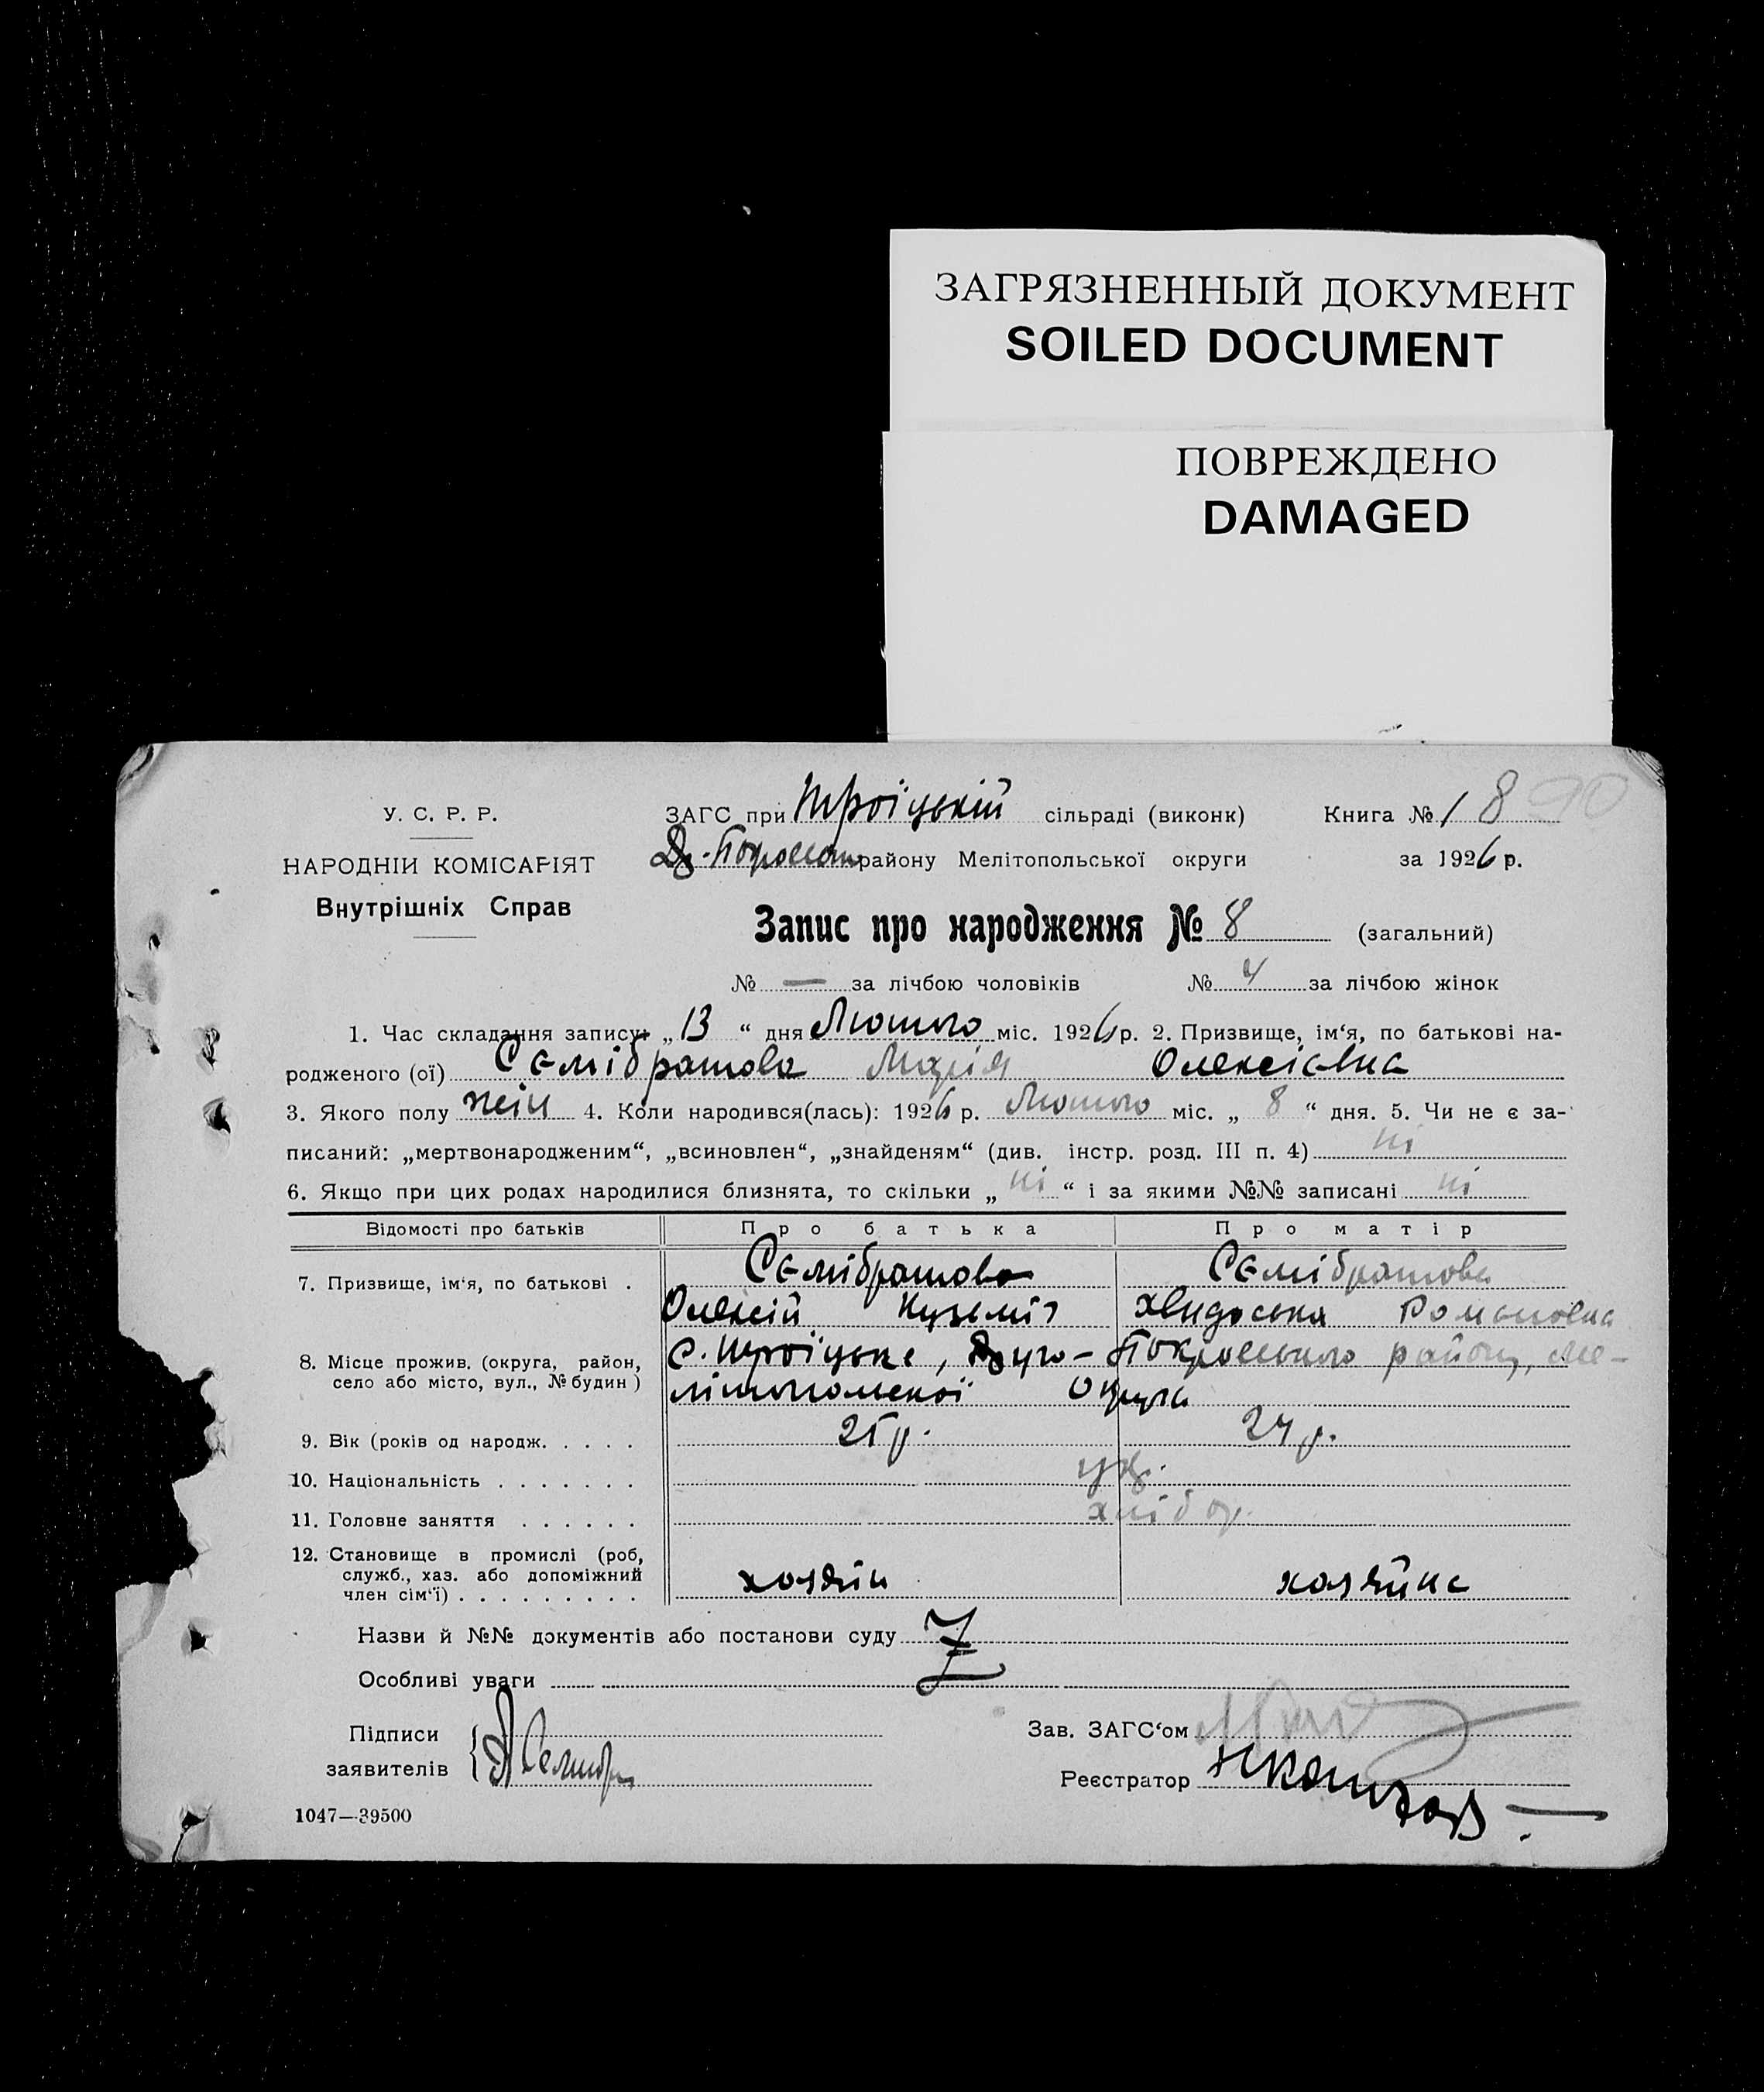 ЗАГРЯЗНЕННЫЙ ДОКУМЕНТ
SOILED DOCUMENT
ПОВРЕЖДЕНО
DAMAGED
У. С. Р. Р.
НАРОДНІЙ КОМІСАРІЯТ
Внутрішніх Справ
ЗАГС при Троїцькій сільраді (виконк) Книга № 1 8 90
району Мелітопольської округи за 1926 р.
Запис про народження № 8 (загальний)
№ — за лічбою чоловіків № 4 за лічбою жінок
1. Час складання запису: „13“ дня Лютого міс. 1926 р. 2. Призвище, ім‘я, по батькові на-
родженого (ої) Семібратова Марія Олексієвна
3. Якого полу жін 4. Коли народився(лась): 1926 р. Лютого міс. „8“ дня. 5. Чи не є за-
писаний: „мертвонародженим“, „всиновлен“, „знайденям“ (див. інстр. розд. III п. 4) ні
6. Якщо при цих родах народилися близнята, то скільки „ні“ і за якими №№ записані ні
Відомості про батьків Про батька Про матір
7. Призвище, ім‘я, по батькові . Семібратова Семібратова
Олексій Кузьміч Хвидоська Романовна
8. Місце прожив. (округа, район, село або місто, вул., № будин) с. Троїцьке, Друго-Покровського району, Ме-
літопольської Округи
9. Вік (років од народж. . . . . 25 р. 24 р.
10. Національність . . . . . . . укр.
11. Головне заняття . . . . . . хлібор.
12. Становище в промислі (роб, служб., хаз. або допоміжний член сім‘ї) . . . . . . . . . хозяїн хозяйка
Назви й №№ документів або постанови суду
Особливі уваги
Підписи
заявителів
Зав. ЗАГС‘ом
Реєстратор
1047—39500